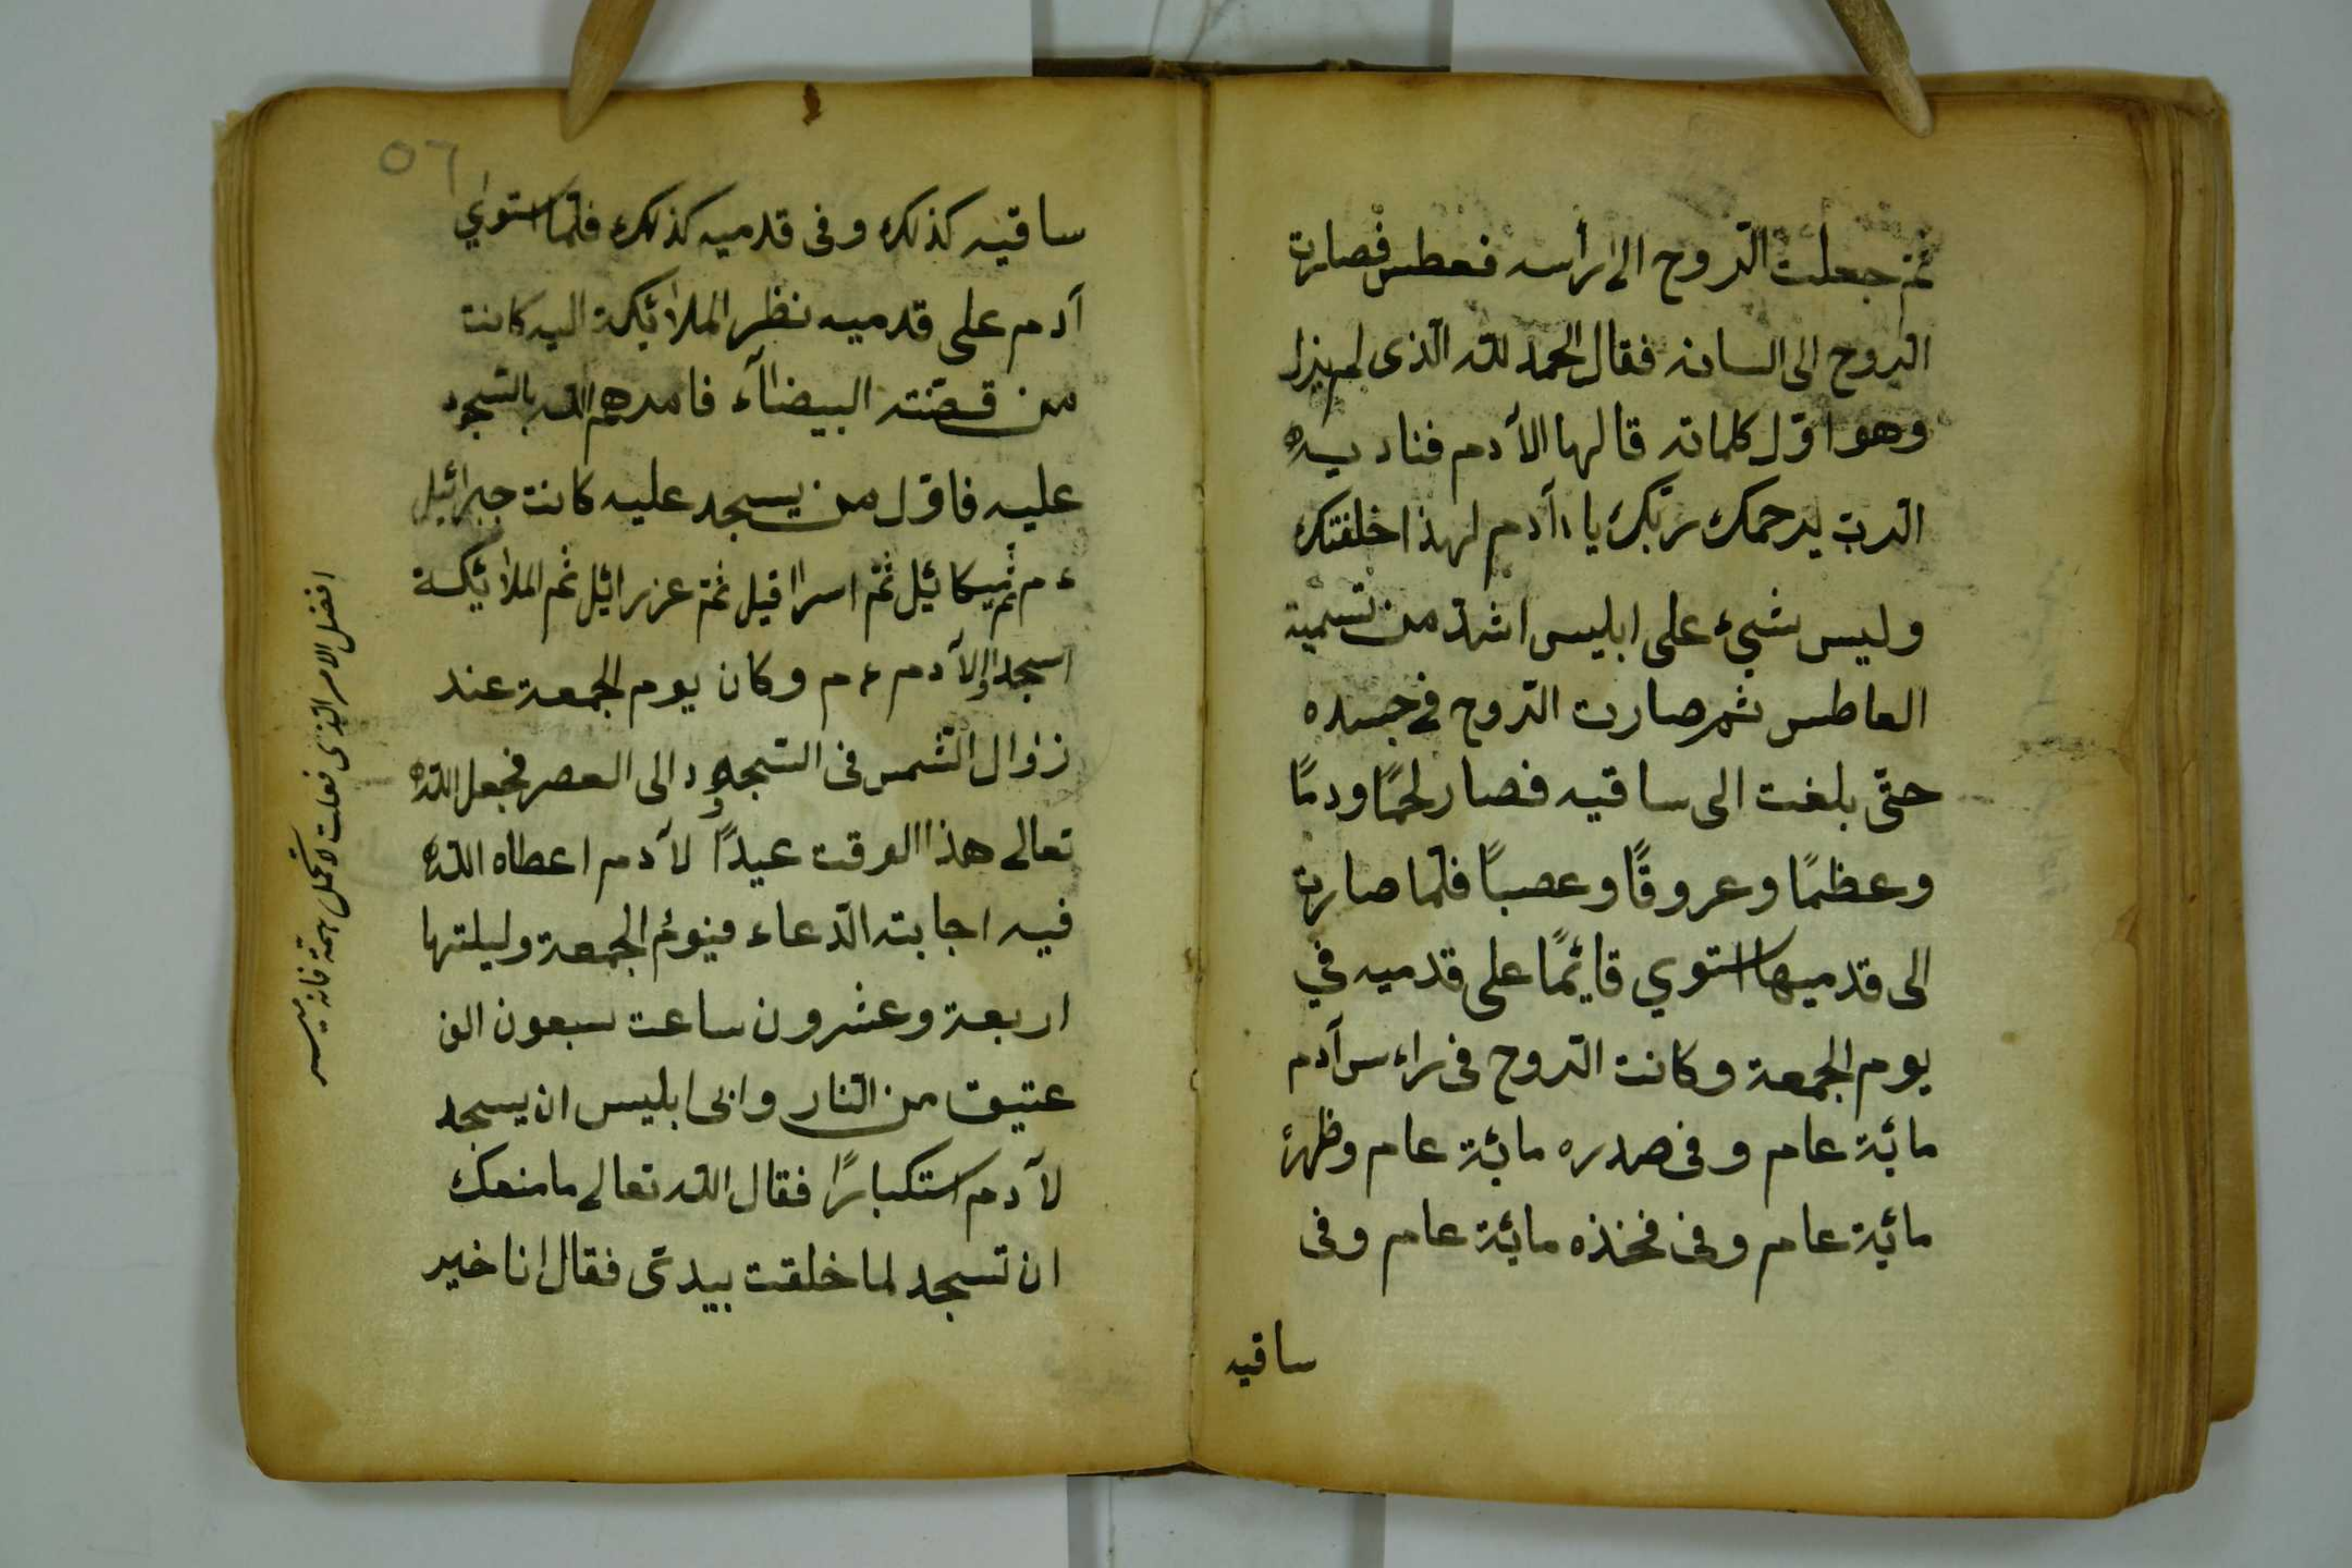 ثم جعلت الرّوح الى رأسه فعطس فصارت
الرّوح الى السانه فقال الحمد لله الّذى لم يزل
وهو اوّل كلماته قالها الآدم فناد يه
الربّ يرحمك ربّك ياء آدم لهذا خلقتك
وليس شيئ على ابليس اشدّ من تسمية
العاطس ثم صارت الرّوح فى جسده
حتّى بلغت الى ساقيه فصار لحمًا ودمًا
وعظمًا وعروقًا وعصبًا فلمّا صارت
الى قدميها استوي قائمًا على قدميه في
يوم الجمعة وكانت الرّوح فى راءس آدم
مائة عام وفى صدره مائة عام وظهره
مائة عام وفى فخذه مائة عام وفى
ساقيه
٥٦
ساقيه كذلك وفى قدميه كذلك فلمّا استوي
آدم على قدميه نظر الملائكة اليه كانت
من قصّته البيضاآء فامرهم الله بالسّجود
عليه فاوّل من يسجد عليه كانت جبرائيل
ءم ثم ميكائيل ثمّ اسراافيل ثمّ عزرائيل ثم الملائكة
اسجدا الآدم ءم وكان يوم الجمعة عند
زوال الشّمس فى السّجود الى العصر فجعل الله
تعالى هذا الوقت عيدًا لآدم اعطاه الله
فيه اجابته الدّعاء فيوم الجمعة وليلتها
اربعة وعشرون ساعت سبعون الف
عتيق من النّار وابى ابليس ان يسجد
لآدم استكبارًا فقال الله تعالى مامنعك
ان تسجد لما خلقت بيدىّ فقال انا خير
افضل الامر الذى فعلت لا تحمل